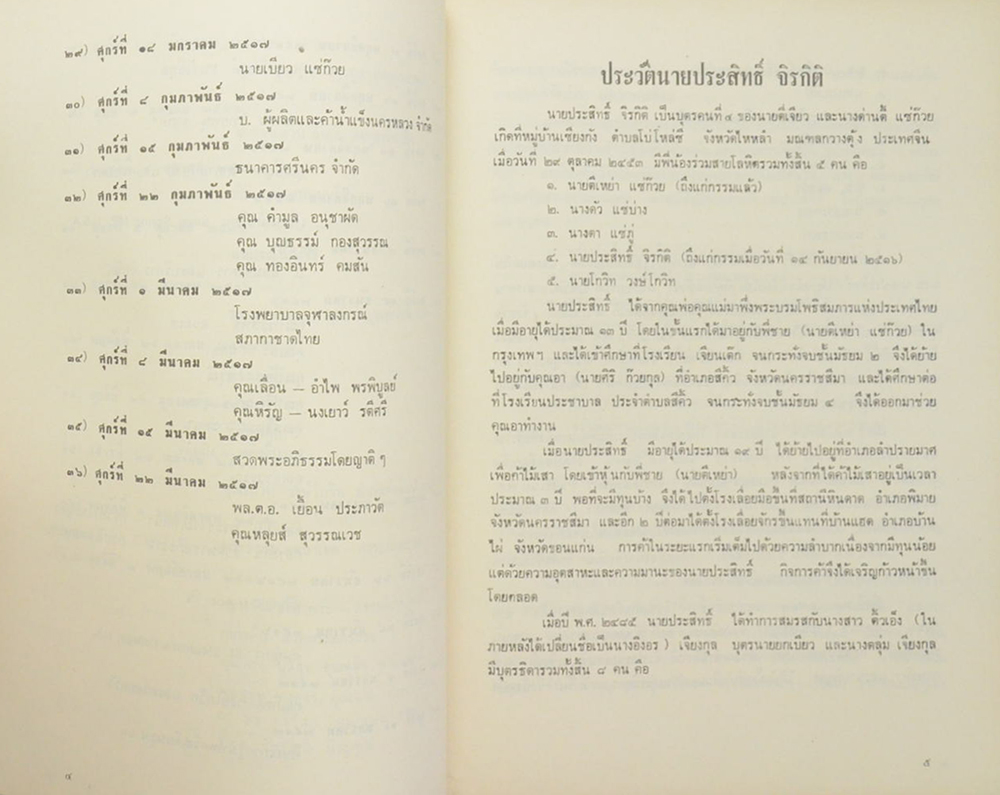 ๒๙) ศุกร์ที่ ๑๘ มกราคม ๒๕๑๗
นายเบียว แซ่ก๊วย
๓๐) ศุกร์ที่ ๘ กุมภาพันธ์ ๒๕๑๗
บ. ผู้ผลิตและค้าน้ำแข็งนครหลวง จำกัด
๓๑) ศุกร์ที่ ๑๕ กุมภาพันธ์ ๒๕๑๗
ธนาคารศรีนคร จำกัด
๓๒) ศุกร์ที่ ๒๒ กุมภาพันธ์ ๒๕๑๗
คุณ คำมูล อนุชาผัด
คุณ บุญธรรม์ กองสุวรรณ
คุณ ทองอินทร์ คมสัน
๓๓) ศุกร์ที่ ๑ มีนาคม ๒๕๑๗
โรงพยาบาลจุฬาลงกรณ์
สภากาชาดไทย
๓๔) ศุกร์ที่ ๘ มีนาคม ๒๕๑๗
คุณเลื่อน — อำไพ พรพิบูลย์
คุณหิรัญ — นงเยาว์ รตีศรี
๓๕) ศุกร์ที่ ๑๕ มีนาคม ๒๕๑๗
สวดพระอภิธรรมโดยญาติ ๆ
๓๖) ศุกร์ที่ ๒๒ มีนาคม ๒๕๑๗
พล.ต.อ. เยื้อน ประภาวัต
คุณหลุยส์ สุวรรณเวช
๔
ประวัตินายประสิทธิ์ จิรกิติ
นายประสิทธิ์ จิรกิติ เป็นบุตรคนที่ ๔ ของนายตี่เจียว และนางด่านตี้ แซ่ก๊วย
เกิดที่หมู่บ้านเซียงกัง ตำบลโบโหล่ซี จังหวัดไหหลำ มณฑลกวางตุ้ง ประเทศจีน
เมื่อวันที่ ๒๙ ตุลาคม ๒๔๕๓ มีพี่น้องร่วมสายโลหิตรวมทั้งสิ้น ๕ คน คือ
๑. นายตีเหย่า แซ่ก๊วย (ถึงแก่กรรมแล้ว)
๒. นางตัว แซ่บ่าง
๓. นางตา แซ่ภู่
๔. นายประสิทธิ์ จิรกิติ (ถึงแก่กรรมเมื่อวันที่ ๑๔ กันยายน ๒๕๑๖)
๕. นายโกวิท วงษ์โกวิท
นายประสิทธิ์ ได้จากคุณพ่อคุณแม่มาพึ่งพระบรมโพธิสมภารแห่งประเทศไทย
เมื่อมีอายุได้ประมาณ ๑๓ ปี โดยในชั้นแรกได้มาอยู่กับพี่ชาย (นายตีเหย่า แซ่ก๊วย) ใน
กรุงเทพฯ และได้เข้าศึกษาที่โรงเรียน เจียนเต๊ก จนกระทั่งจบชั้นมัธยม ๒ จึงได้ย้าย
ไปอยู่กับคุณอา (นายศิริ ก๊วยกุล) ที่อำเภอสีคิ้ว จังหวัดนครราชสีมา และได้ศึกษาต่อ
ที่โรงเรียนประชาบาล ประจำตำบลสีคิ้ว จนกระทั่งจบชั้นมัธยม ๔ จึงได้ออกมาช่วย
คุณอาทำงาน
เมื่อนายประสิทธิ์ มีอายุได้ประมาณ ๑๙ ปี ได้ย้ายไปอยู่ที่อำเภอลำปรายมาศ
เพื่อค้าไม้เสา โดยเข้าหุ้นกับพี่ชาย (นายตีเหย่า) หลังจากที่ได้ค้าไม้เสาอยู่เป็นเวลา
ประมาณ ๓ ปี พอที่จะมีทุนบ้าง จึงได้ไปตั้งโรงเลื่อยมือขึ้นที่สถานีหินดาด อำเภอพิมาย
จังหวัดนครราชสีมา และอีก ๒ ปีต่อมาได้ตั้งโรงเลื่อยจักรขึ้นแทนที่บ้านแฮด อำเภอบ้าน
ไผ่ จังหวัดขอนแก่น การค้าในระยะแรกเริ่มเต็มไปด้วยความลำบากเนื่องจากมีทุนน้อย
แต่ด้วยความอุตสาหะและความมานะของนายประสิทธิ์ กิจการค้าจึงได้เจริญก้าวหน้าขึ้น
โดยตลอด
เมื่อปี พ.ศ. ๒๔๘๕ นายประสิทธิ์ ได้ทำการสมรสกับนางสาว คิ้วเอ็ง (ใน
ภายหลังได้เปลี่ยนชื่อเป็นนางอิงอร) เจียงกุล บุตรนายยกเบียว และนางตลุ่ม เจียงกุล
มีบุตรธิดารวมทั้งสิ้น ๘ คน คือ
๕